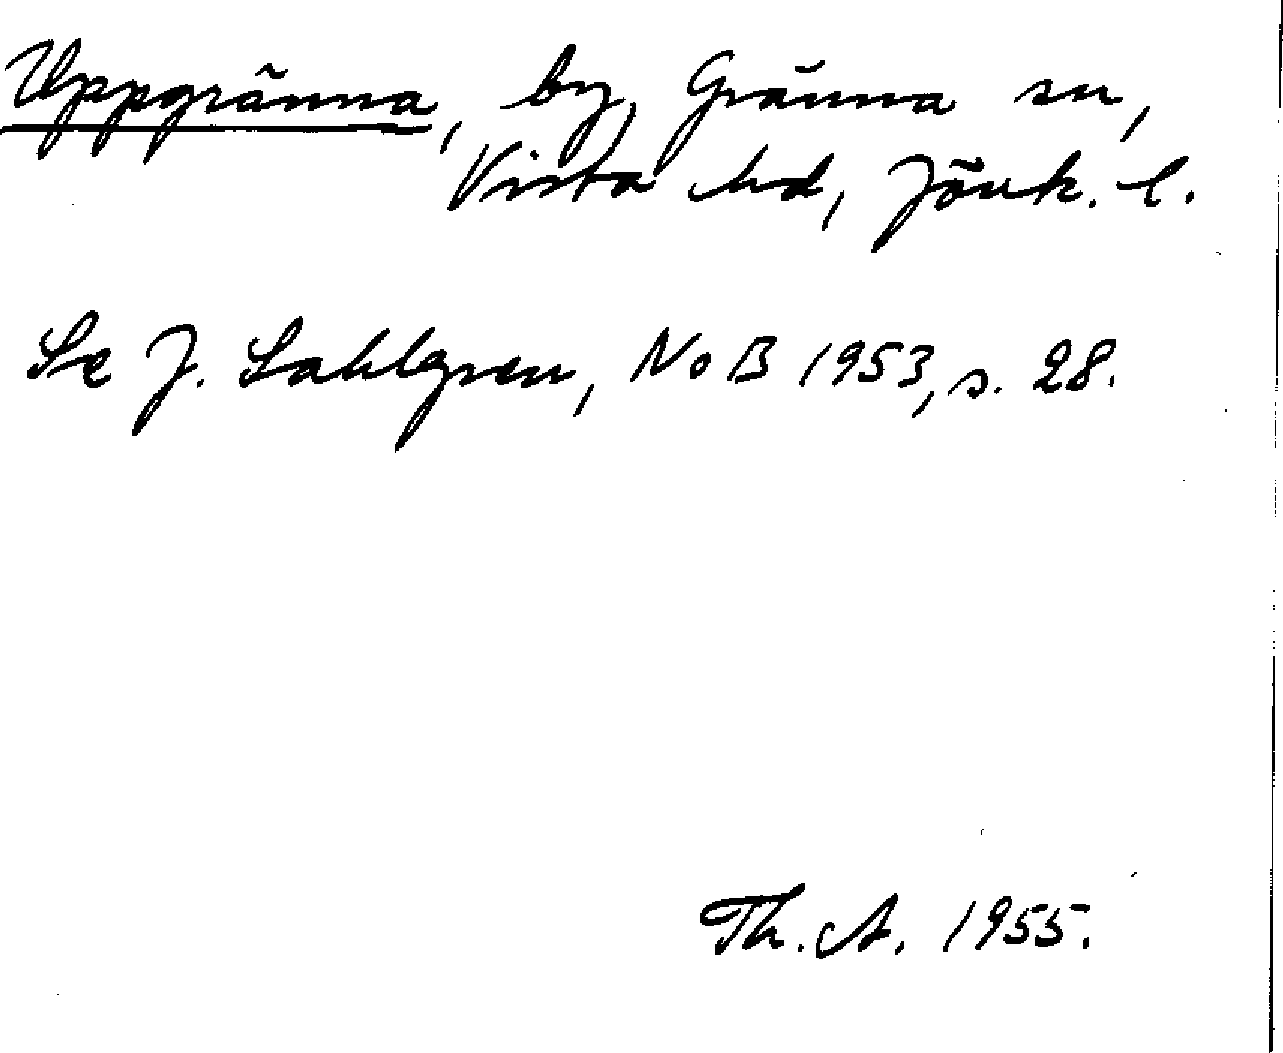 Uppgränna, by, Gränna sn,
Vista hd, Jönk. l.
Se J. Sahlgren, NoB 1953, s. 28.
Th. A. 1955.